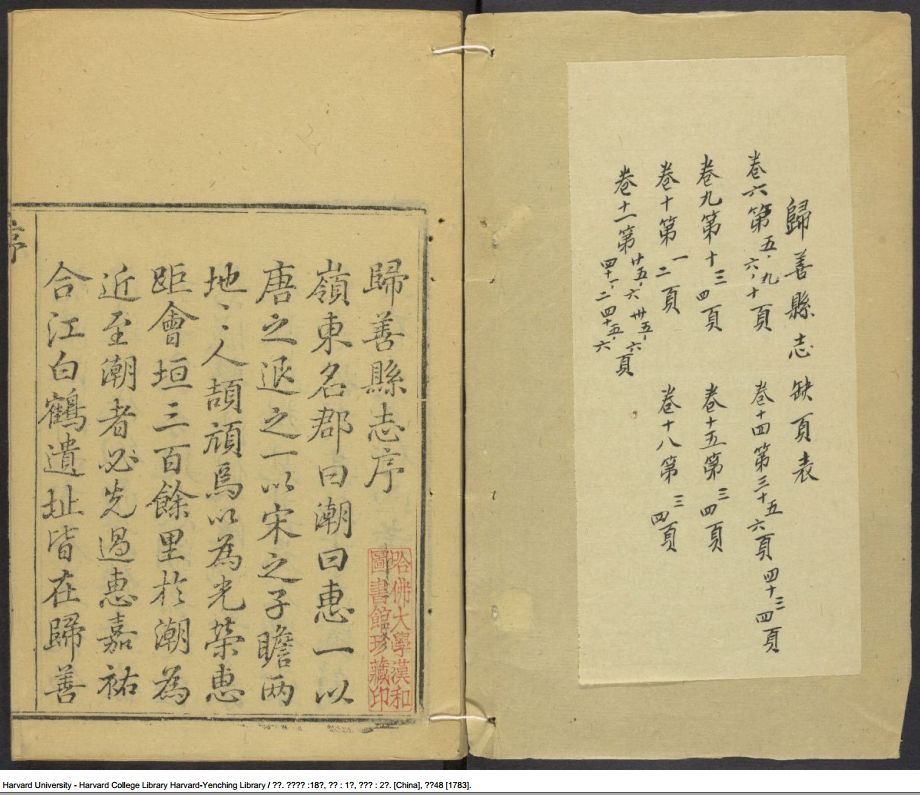 歸善縣志缺頁表
卷六第五、六、九、十頁
卷九第十三四頁
卷十第一二頁
卷十一第廿五、六 卅五、六 四十一、二 四十五、六頁
卷十四第三十五六頁 四十三四頁
卷十五第三四頁
卷十八第三四頁
歸善縣志序
嶺東名郡曰潮曰惠一以
唐之退之一以宋之子瞻两
地〻人頡頏焉以為光榮惠
距會垣三百餘里於潮為
近至潮者必先過惠嘉祐
合江白鶴遺址皆在歸善
序
哈佛大學漢和
圖書館珍藏印
Harvard University - Harvard College Library Harvard-Yenching Library / ??. ???? :18?, ?? : 1?, ??? : 2?. [China], ??48 [1783].